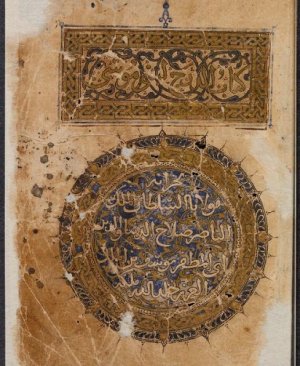 كتاب
لخزانة
مولانا السلطان الملك
الناصر صلاح الدنيا والدين
ابى المظفر يوسف بن الملك
العزيز خلد الله ملكه